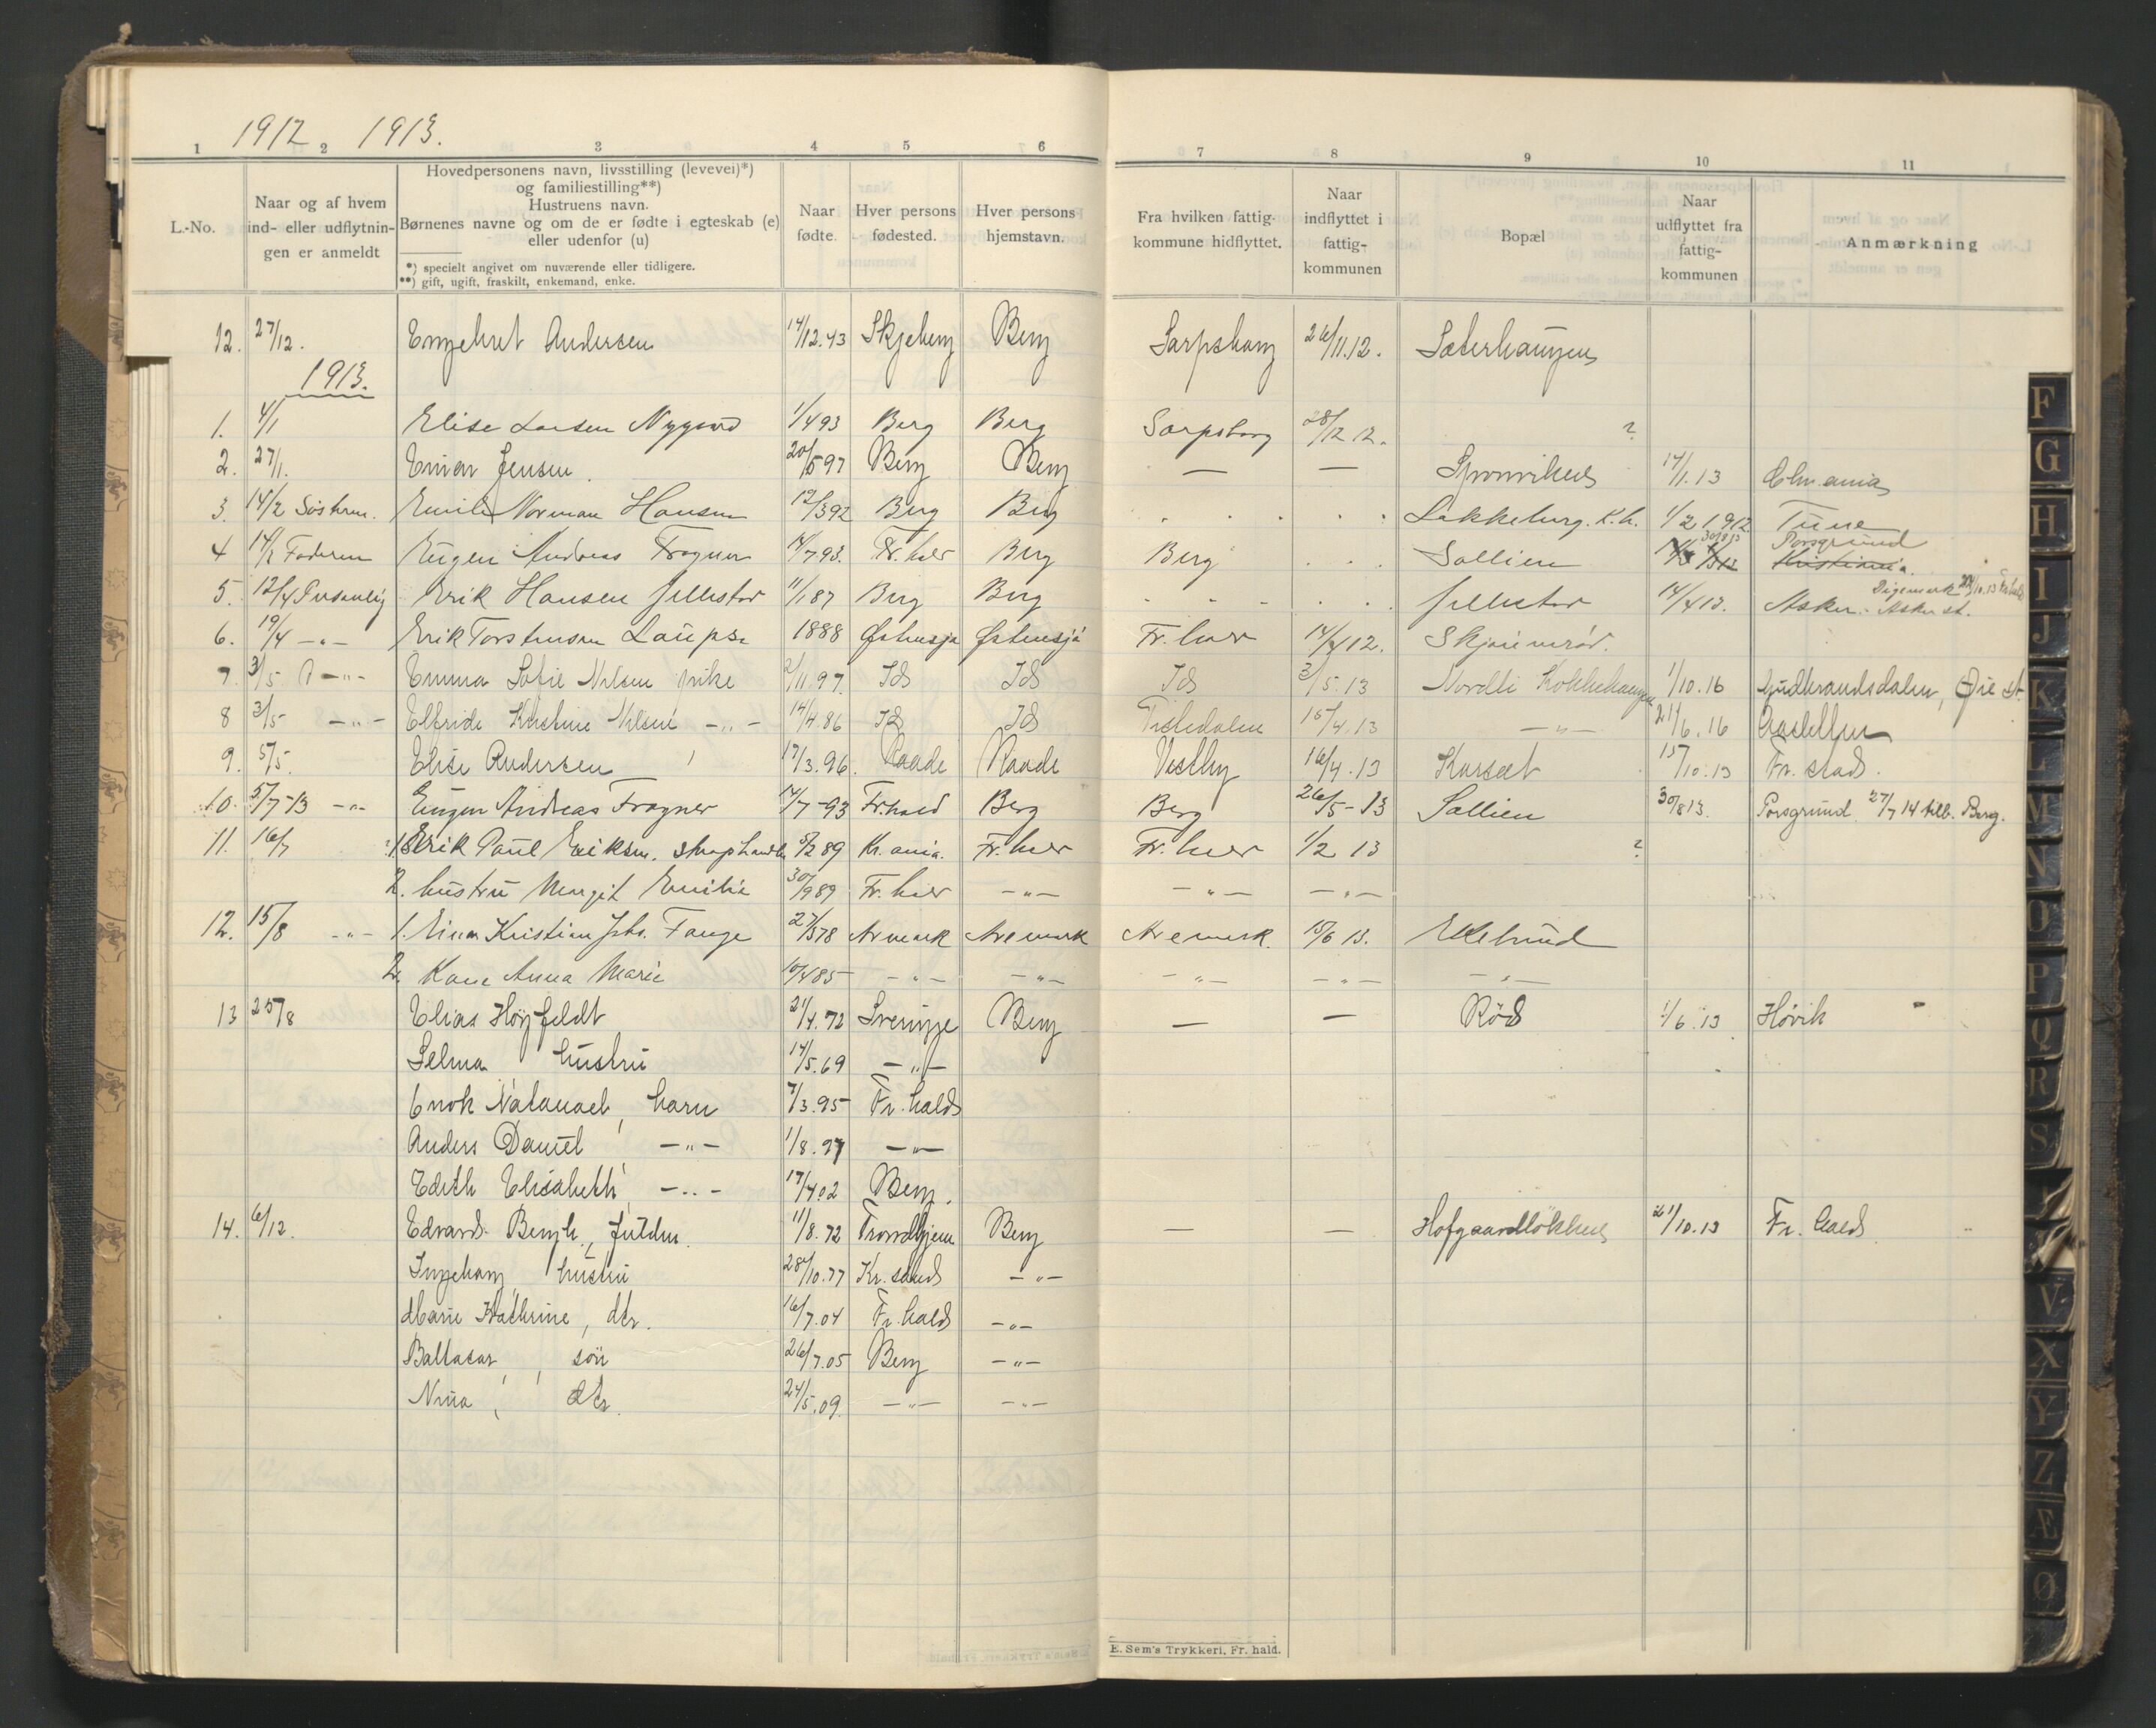 1912 1913.
1 2 3 4 5 6 7 8 9 10 11
L.-No.
Naar og af hvem
ind- eller udflytnin-
gen er anmeldt
Hovedpersonens navn, livsstilling (levevei)*)
og familiestilling**)
Hustruens navn.
Børnenes navne og om de er fødte i egteskab (e)
eller udenfor (u)
*) specielt angivet om nuværende eller tidligere.
**) gift, ugift, fraskilt, enkemand, enke.
Naar
fødte.
Hver persons
fødested.
Hver persons
hjemstavn.
Fra hvilken fattig-
kommune hidflyttet.
Naar
indflyttet i
fattig-
kommunen
Bopæl
Naar
udflyttet fra
fattig-
kommunen
Anmærkning
12. 27/12. Engebret Andersen 14/12.43 Skjeberg Berg Sarpsborg 26/11.12. Sæterhaugen
1913.
1. 4/1 Elise Larsen Nygaard 1/4 93 Berg Berg Sarpsborg 28/12 12. ?
2. 27/1. Einar Jensen. 20/5 97 Berg Berg — — Sponviken 14/1.13 Chr.ania
3. 14/2 Søsteren. Emil Norman Hansen 12/3 92 Berg Berg . . . . . Lakkeberg. K.h. 1/2 1912 Tune
4 14/2 Faderen Eugen Andreas Fragner 14/7 93. Fr.hald Berg Berg . . . Sollien 30/8 13 Porsgrund Kristiania.
5. 12/4 Personlig Erik Hansen Jellestad 11/1 87 Berg Berg . . . . . Jellestad 14/4 13. Asker. Asker st. Digemark
6. 19/4 -„- Erik Torstensen 1888 Østensjø Østensjø Fr.hald 14/4 12. Skjønnerød.
7. 3/5 -„- Emma Sofie Nilsen pike 2/11.97. Id Id Id 3/5.13 Nordli Kokkehaugen 1/10.16 Gudbrandsdalen, Øie st.
8 3/5 -„- Elfride Kristine Nilsen -„- 14/4.86 Id Id Tistedalen 15/4.13 -„- 21/6.16
9. 5/5. Elise Andersen 17/3.96. Raade Raade Vestby 16/4.13 Karset 15/10.13 Fr.stad.
10. 5/7-13 -„- Eugen Andreas Fragner 14/7-93 Fr.hald Berg Berg 26/5-13 Sollien 30/8 13. Porsgrund. 27/7 14 tilb. Berg.
11. 16/7 1. Erik Paul Eriksen. 5/2 89 Kr.ania. Fr.hald Fr.hald 1/2 13 ?
2. hustru Margit Emilie 30/9 89 Fr.hald -„- -„- -„-
12. 15/8 -„- 1. Einar Kristian Johs. Fange 27/3 78 Aremark Aremark Aremark. 15/6 13. Ekelund
2. Kone Anna Marie 10/4 85 -„- -„- -„- -„- -„-
13 25/8 Elias Högfeldt 21/4.72 Sverige Berg — — Röd 1/6.13 Høvik
Selma hustru 14/5.69 -„-
Enok Natanael, barn 7/3.95 Fr.hald
Anders Daniel -„- 1/8.97 -„-
Edith Elisabeth, -„- 17/4 02 Berg.
14. 6/12. Edvard Bengh., 11/8.72 Trondhjem Berg — — Hofgaardløkken 21/10.13 Fr.hald
Ingeborg, hustru 28/10.77 Kr.sand -„-
Marie Kathrine, dtr. 16/7.04 Fr.hald -„-
Baltasar, søn 26/7.05 Berg -„-
Nina, dtr. 24/5.09. -„- -„-
E. Sem's Trykkeri, Fr. hald.
F
G
H
I
J
K
L
M
N
O
P
Q
R
S
V
X
Y
Z
Æ
Ø